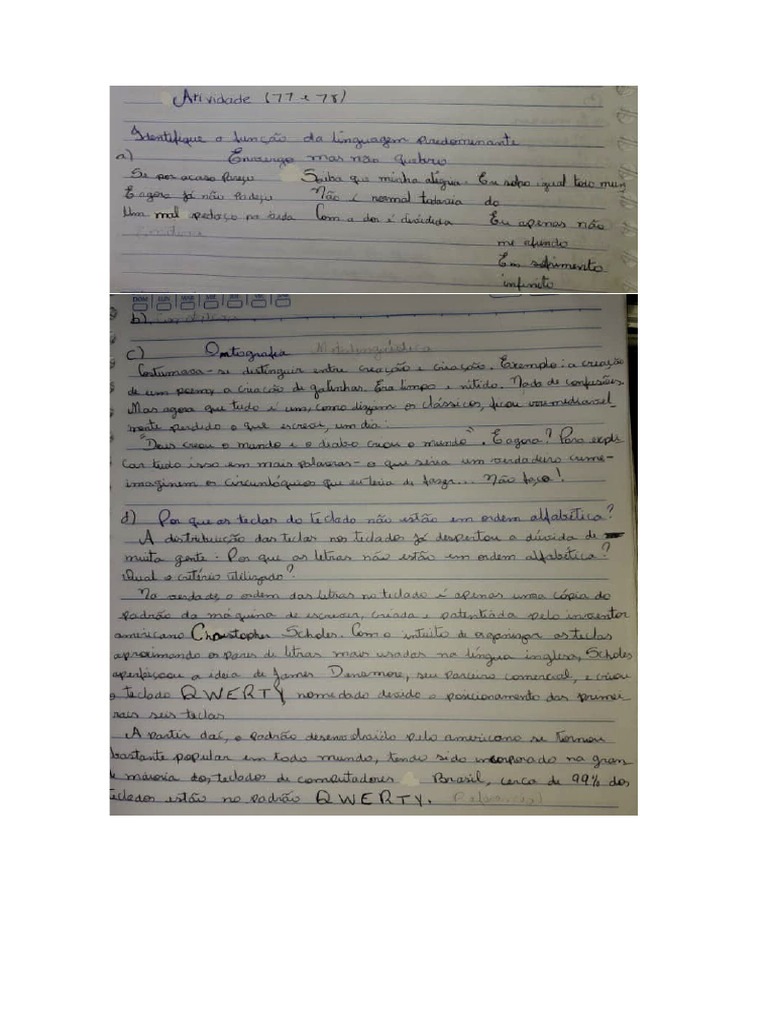 Atividade (77 e 78)
Identifique a função da linguagem predominante
a) Envergo mas não quebro
Se por acaso Pareço Saiba que minha alegria. Eu sofro igual todo mun
E agora Já não Padeço Não é normal todavia do
Um mal pedaço na vida Com a dor é dividida Eu apenas não
Emotiva me afundo
Em sofrimento
infinito
DOM SEG TER
b)
c) Ortografia Metalinguística
Costumava-se distinguir entre creação e criação. Exemplo: a creação
de um poema, a criação de galinhas. Era limpo e nítido. Nada de confusões.
Mas agora que tudo é um, como diziam os clássicos, ficou irremediavel-
mente perdido o que escrevi, um dia:
"Deus creou o mundo e o diabo criou o mundo". E agora? Para expli
car tudo isso em mais palavras - o que seria um verdadeiro crime -
imaginem os circunlóquios que eu teria de fazer... Não faço!
d) Por que as teclas do teclado não estão em ordem alfabética?
A distribuição das teclas nos teclados já despertou a dúvida de
muita gente: Por que as letras não estão em ordem alfabética?
Qual o critério utilizado?
Na verdade, o ordem das letras no teclado é apenas uma cópia do
padrão da máquina de escrever, criada e patentiada pelo inventor
americano Christopher Scholes. Com o intuito de organizar as teclas
aproximando os pares de letras mais usadas na língua inglesa, Scholes
aperfeiçoou a ideia de James Densmore, seu parceiro comercial, e criou
o teclado QWERTY, nomedado devido o posicionamento das primei
rais seis teclas
A partir daí, o padrão desenvolvido pelo americano se tornou
bastante popular em todo mundo, tendo sido incorporado na gran
de máioria dos teclados de computadores Brasil, cerca de 99% dos
teclados estão no padrão QWERTY. Referencial